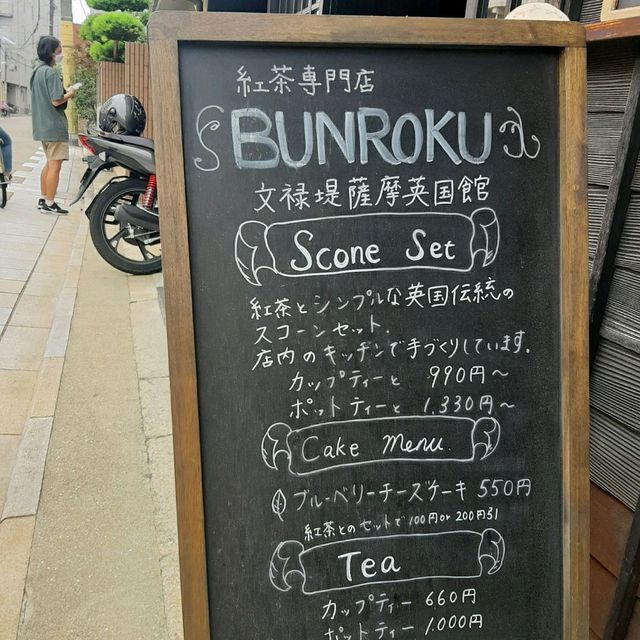 紅茶専門店
BUNROKU
文禄堤薩摩英国館
Scone Set
紅茶とシンプルな英国伝統の
スコーンセット.
店内のキッチンで手づくりしています.
カップティーと 990円~
ポットティーと 1.330円~
Cake Menu.
ブルーベリーチーズケーキ 550円
紅茶とのセットで100円or 200円引
Tea
カップティー 660円
ポットティー 1.000円